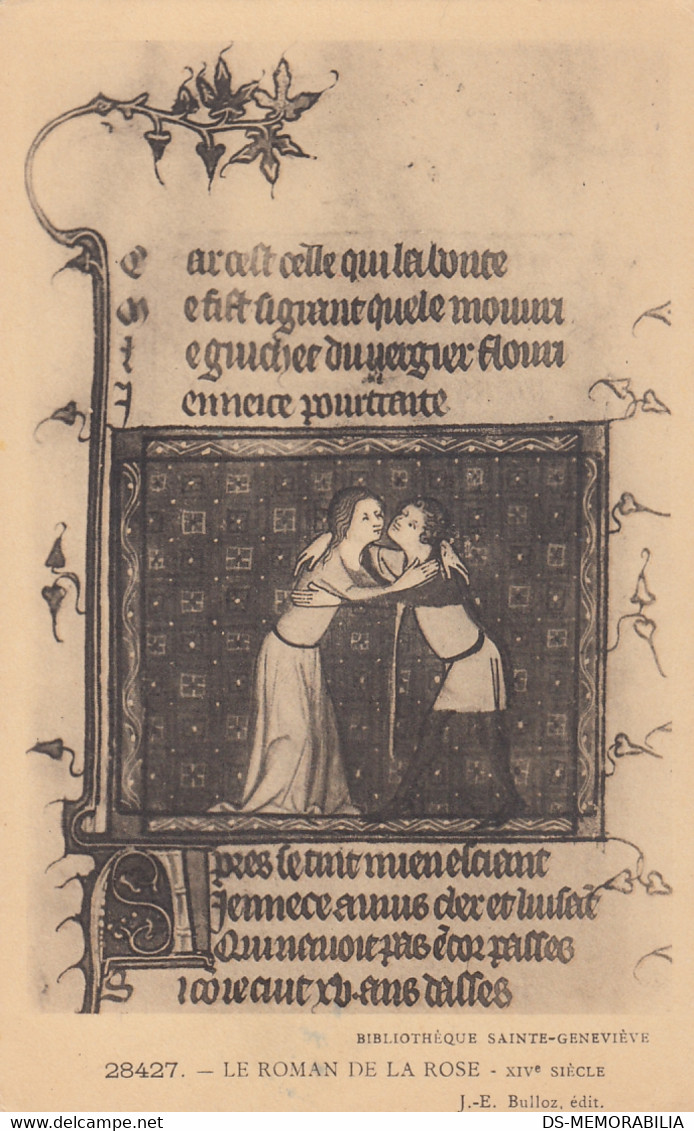 C ar cest celle qui la bonte
M e fist si grant quele mouuri
L e guichet du uergier flouri
J enneice pourtraite
Apres se tint mien esciant
Jennece au uis cler et luisant
Qui nauoit pas ẽcor passes
S i cõ ie cuit xv. ans dasses
BIBLIOTHÈQUE SAINTE-GENEVIÈVE
28427. — LE ROMAN DE LA ROSE - XIVe SIÈCLE
J.-E. Bulloz, édit.
DS-MEMORABILIA